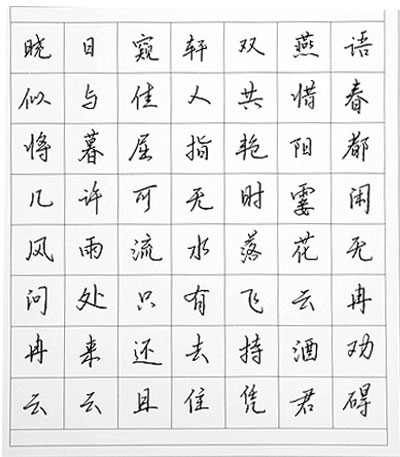 晓日窥轩双燕语
似与佳人共惜春
将暮屈指艳阳都
几许可无时霎闲
风雨流水落花无
问处只有飞云冉
冉来还去持酒劝
云云且住凭君碍